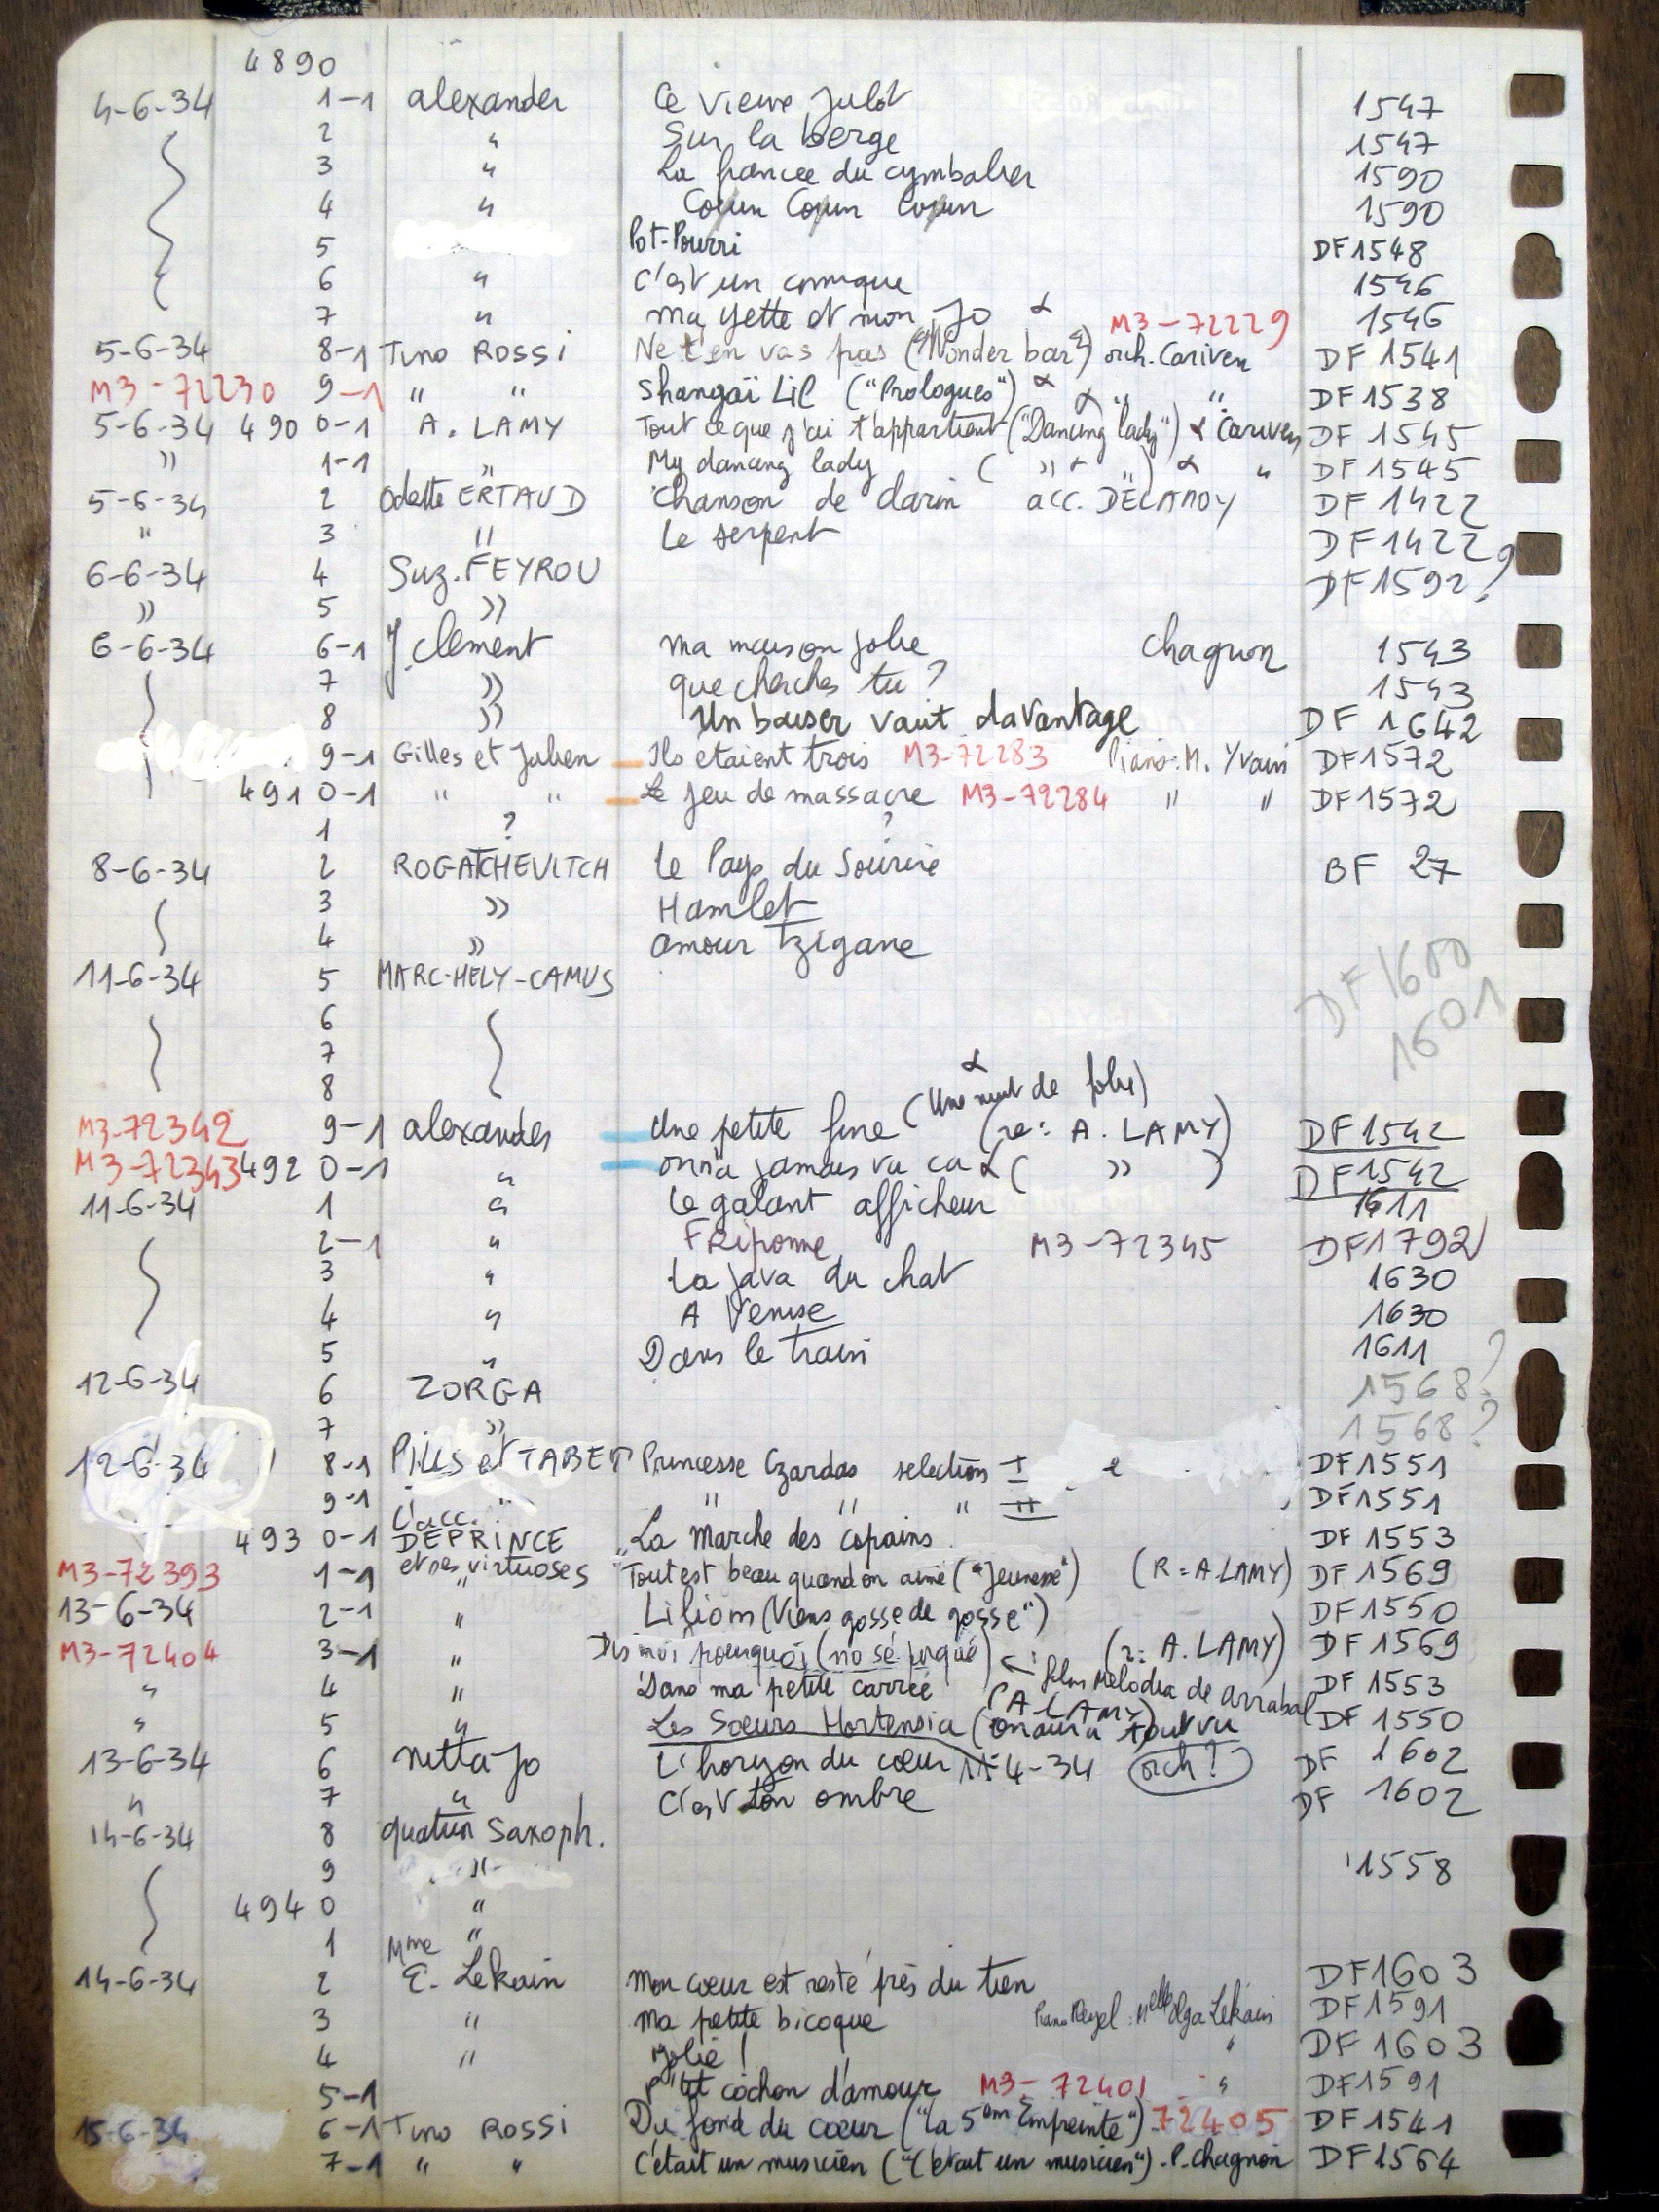 4890
4-6-34 1-1 alexander Ce vieux Julot 1547
2 " Sur la berge 1547
3 " La fiancée du cymbalier 1590
4 " Copin Copin Copin 1590
5 Pot-Pourri DF1548
6 " C'est un comique 1546
7 " ma Yette et mon Jo α 1546
M3-72229
5-6-34 8-1 Tino ROSSI Ne t'en vas pas ("Wonder bar") orch. Cariven DF 1541
M3-72230 9-1 " " Shangaï Lil ("Prologues") α " " DF 1538
5-6-34 490 0-1 A. LAMY Tout ce que j'ai t'appartient ("Dancing lady") α Cariven DF 1545
" 1-1 " My dancing lady ( " " ) α " DF 1545
5-6-34 2 Odette ERTAUD Chanson de clarin acc. DELANOY DF 1422
" 3 " Le serpent DF 1422
6-6-34 4 Suz. FEYROU DF 1592 ?
" 5 "
6-6-34 6-1 J. Clement ma maison jolie Chagnon 1543
7 " que cherches tu ? 1543
8 " Un baiser vaut davantage DF 1642
9-1 Gilles et Julien Ils etaient trois M3-72283 Piano: M. Yvain DF1572
491 0-1 " " Le jeu de massacre M3-72284 " " DF1572
1 ? ?
8-6-34 2 ROGATCHEVITCH Le Pays du Sourire BF 27
3 " Hamlet
4 " amour tzigane
11-6-34 5 MARC-HELY-CAMUS DF 1600
6 1601
7
8
(Une nuit de folie) α
M3-72342 9-1 alexander Une petite fine (re: A. LAMY) DF1542
M3-72343 492 0-1 " on n'a jamais vu ca α ( " ) DF1542
11-6-34 1 " Le galant afficheur 1611
2-1 " FRiponne M3-72345 DF1792
3 " La java du chat 1630
4 " A Venise 1630
5 " Dans le train 1611
12-6-34 6 ZORGA 1568 ?
7 " 1568 ?
12-6-34 8-1 PiLLS et TABET Princesse Czardas selection I DF1551
9-1 " " " " II DF1551
493 0-1 L'acc. DEPRINCE La Marche des copains DF 1553
M3-72393 1-1 et ses virtuoses Tout est beau quand on aime ("Jeunesse") (R = A. LAMY) DF 1569
13-6-34 2-1 " Liliom (Viens gosse de gosse") DF 1550
M3-72404 3-1 " Dis moi pourquoi (no sé porqué) (r: A. LAMY) DF 1569
← film Melodia de arrabal
" 4 " Dans ma petite carrée DF 1553
(A LAMY)
" 5 " Les Soeurs Hortensia (on aura tout vu DF 1550
13-6-34 6 nitta Jo L'horizon du coeur 11-4-34 orch? DF 1602
" 7 " C'est ton ombre DF 1602
14-6-34 8 quatuor Saxoph.
9 " 1558
494 0 "
1 "
14-6-34 2 Mme E. Lekain Mon coeur est resté près du tien DF1603
3 " Ma petite bicoque Piano Pleyel: Melle Olga Lekain DF1591
4 " Jolie ! " DF 1603
5-1 p'tit cochon d'amour M3-72401 " DF1591
15-6-34 6-1 Tino ROSSI Du fond du coeur ("la 5em Empreinte") 72405 DF 1541
7-1 " " C'était un musicien ("C'était un musicien") - P. Chagnon DF1564